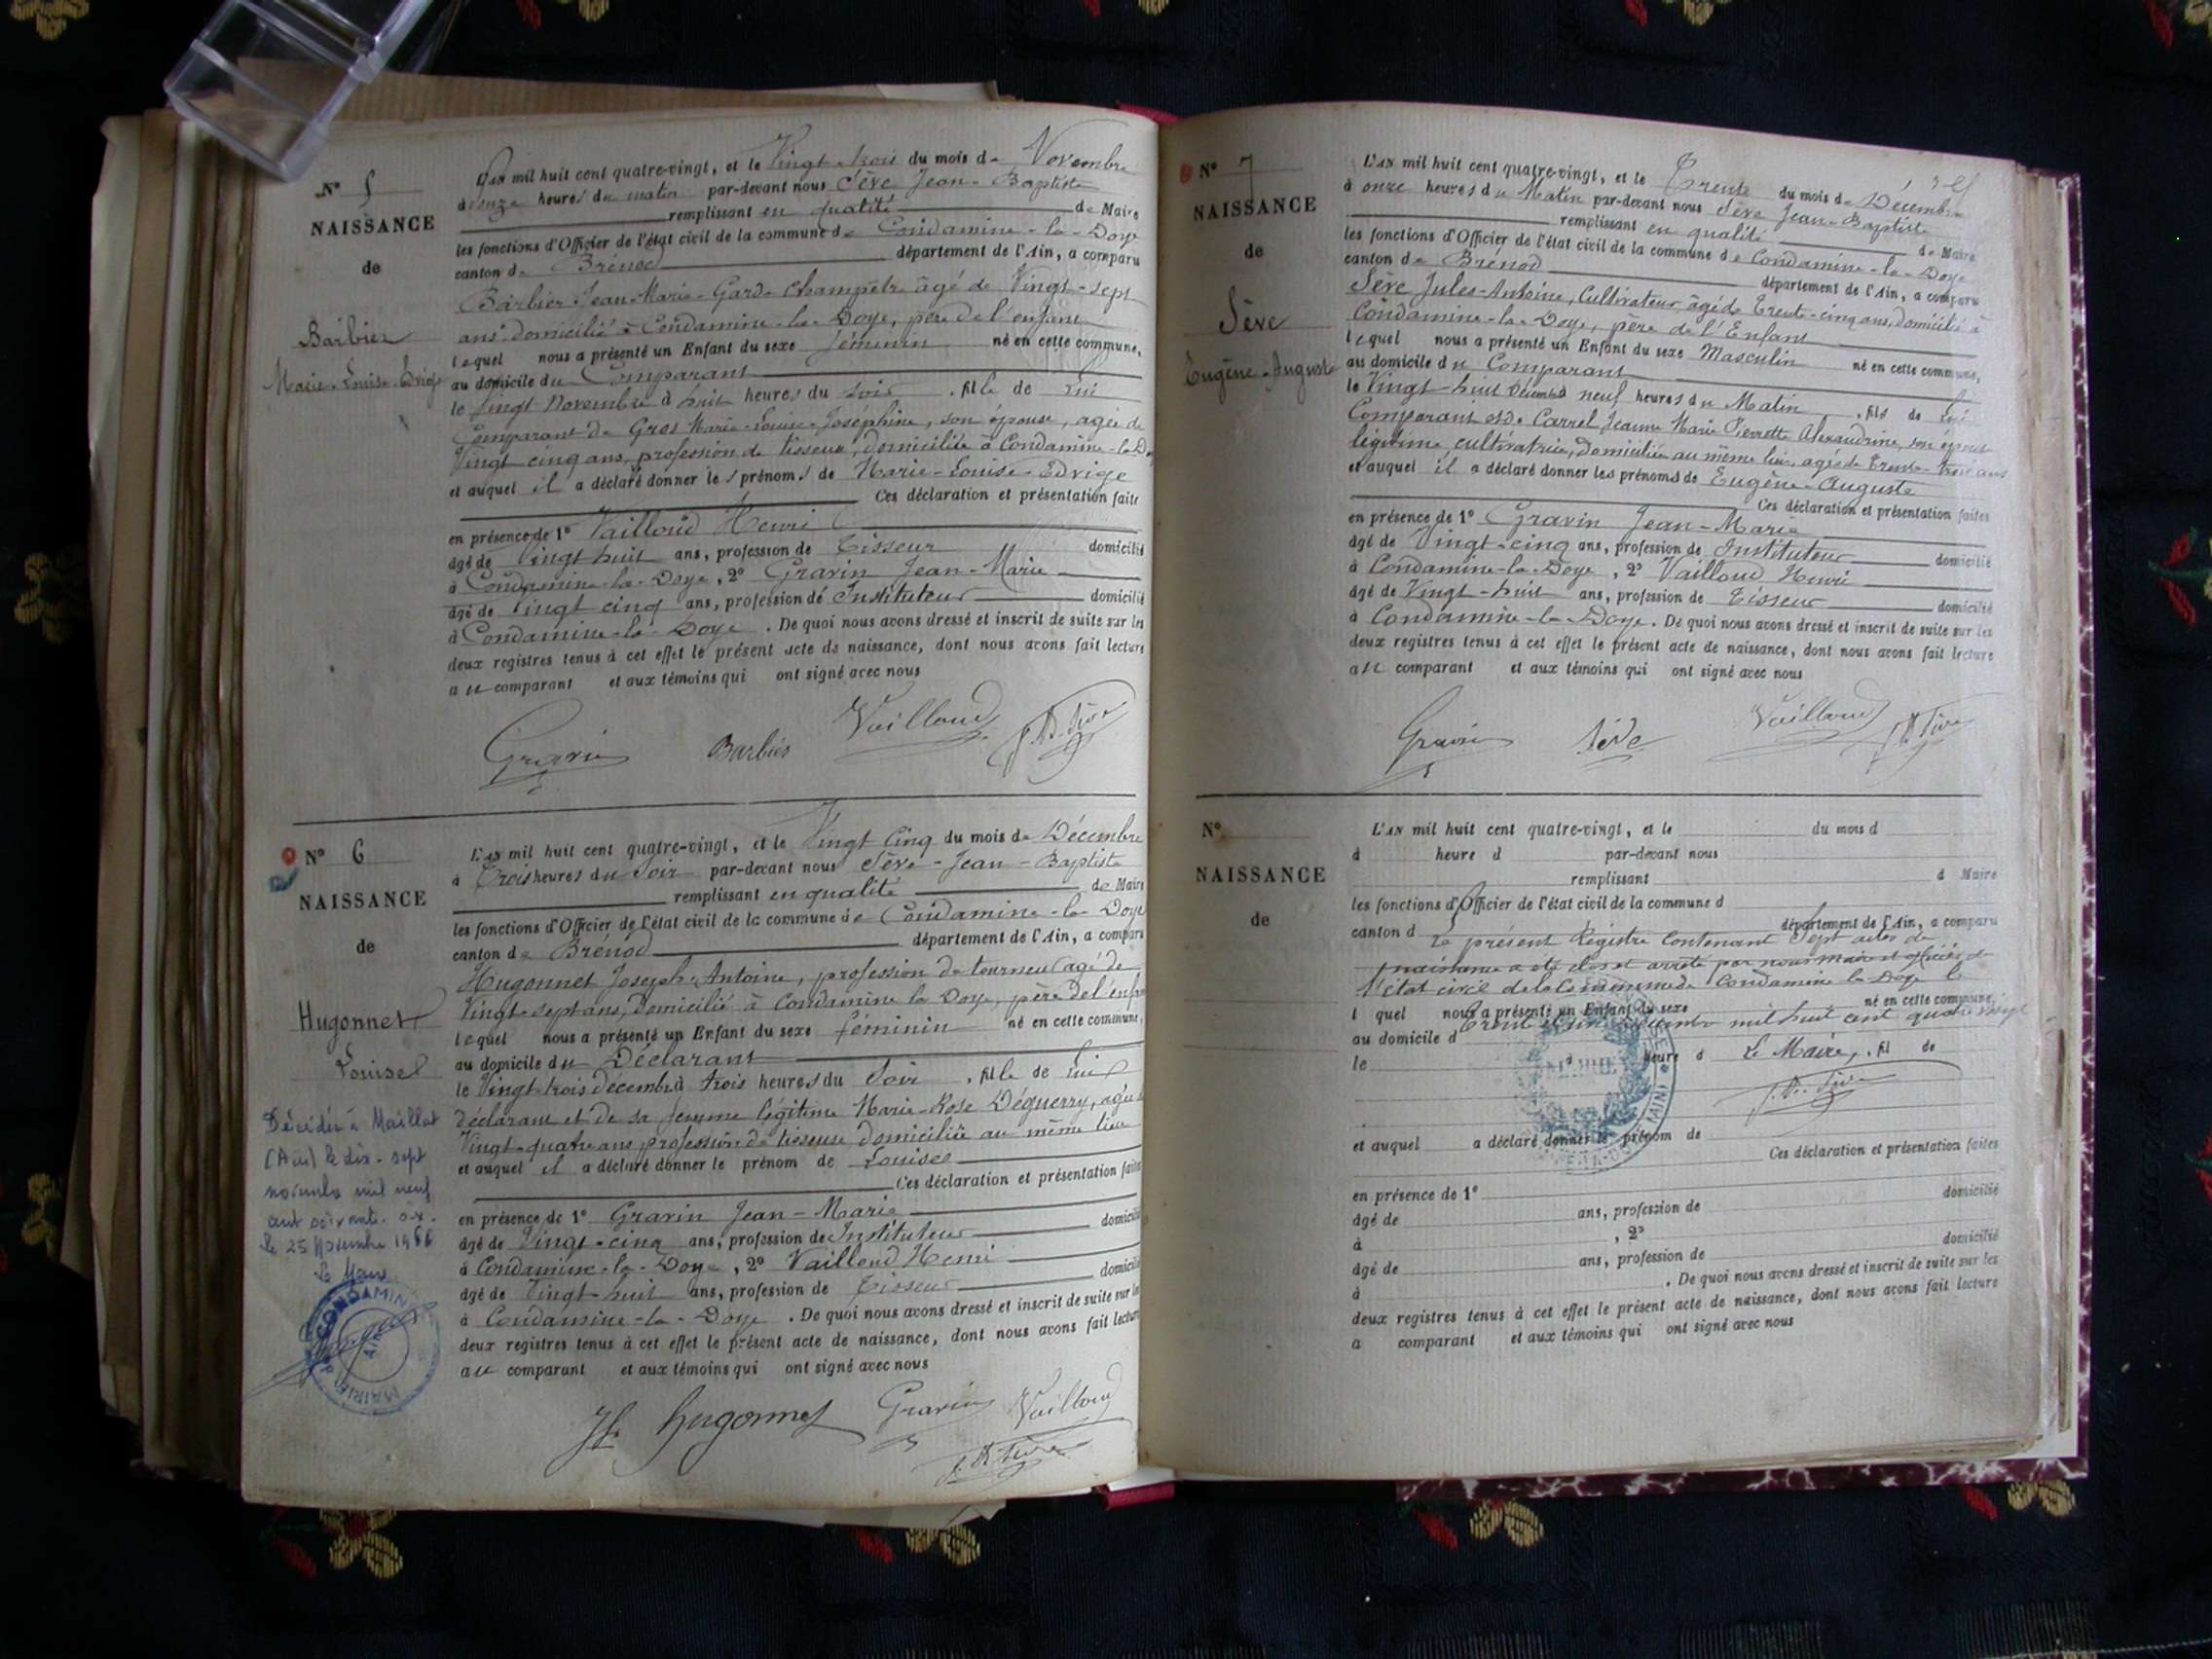 N° 5
NAISSANCE
de
Barbier
Marie-Louise-Edvige
L'AN mil huit cent quatre-vingt, et le Vingt-trois du mois de Novembre
à onze heures du matin par-devant nous Sève Jean-Baptiste
remplissant en qualité de Maire
les fonctions d'Officier de l'état civil de la commune de Condamine-la-Doye
canton de Brénod département de l'Ain, a comparu
Barbier Jean-Marie-Garde Champêtre âgé de Vingt-sept
ans domicilié à Condamine-la-Doye, père de l'enfant
lequel nous a présenté un Enfant du sexe féminin né en cette commune,
au domicile du Comparant
le Vingt Novembre à huit heures du soir, fille de lui
Comparant de Gros Marie-Louise-Joséphine, son épouse, agée de
Vingt cinq ans, profession de tisseuse, domiciliée à Condamine-la-Doye
et auquel il a déclaré donner les prénoms de Marie-Louise-Edvige
Ces déclaration et présentation faites
en présence de 1° Vailloud Henri
âgé de Vingt huit ans, profession de Tisseur domicilié
à Condamine-la-Doye, 2° Gravin Jean-Marie
âgé de Vingt cinq ans, profession de Instituteur domicilié
à Condamine-la-Doye. De quoi nous avons dressé et inscrit de suite sur les
deux registres tenus à cet effet le présent acte de naissance, dont nous avons fait lecture
au comparant et aux témoins qui ont signé avec nous
Gravin Barbier Vailloud J.B. Sève
N° 6
NAISSANCE
de
Hugonnet
Louise
Décédée à Maillat
(Ain) le dix-sept
novembre mil neuf
cent soixante-six.
le 25 Novembre 1966
Le Maire
CONDAMINE
AIN
MAIRIE
L'AN mil huit cent quatre-vingt, et le Vingt Cinq du mois de Décembre
à Trois heures du Soir par-devant nous Sève-Jean-Baptiste
remplissant en qualité de Maire
les fonctions d'Officier de l'état civil de la commune de Condamine-la-Doye
canton de Brénod département de l'Ain, a comparu
Hugonnet Joseph-Antoine, profession de tourneur agé de
Vingt-sept ans, Domicilié à Condamine la Doye, père de l'enfant
lequel nous a présenté un Enfant du sexe féminin né en cette commune,
au domicile du Déclarant
le Vingt-trois décembre à trois heures du Soir, fille de lui
déclarant et de sa femme légitime Marie-Rose Déguerry, agée de
Vingt-quatre ans profession de tisseuse domiciliée au même lieu
et auquel il a déclaré donner le prénom de Louise
Ces déclaration et présentation faites
en présence de 1° Gravin Jean-Marie
âgé de Vingt-cinq ans, profession de Instituteur domicilié
à Condamine-la-Doye, 2° Vailloud Henri
âgé de Vingt-huit ans, profession de Tisseur domicilié
à Condamine-la-Doye. De quoi nous avons dressé et inscrit de suite sur les
deux registres tenus à cet effet le présent acte de naissance, dont nous avons fait lecture
au comparant et aux témoins qui ont signé avec nous
Hugonnet Gravin Vailloud
J.B. Sève
N° 7
NAISSANCE
de
Sève
Eugène-Auguste
L'AN mil huit cent quatre-vingt, et le Trente du mois de Décembre
à onze heures du Matin par-devant nous Sève Jean-Baptiste
remplissant en qualité de Maire
les fonctions d'Officier de l'état civil de la commune de Condamine-la-Doye
canton de Brénod département de l'Ain, a comparu
Sève Jules-Antoine, Cultivateur, âgé de Trente-cinq ans, domicilié à
Condamine-la-Doye, père de l'Enfant
lequel nous a présenté un Enfant du sexe Masculin né en cette commune,
au domicile du Comparant
le Vingt huit Décembre à neuf heures du Matin, fils de lui
Comparant et de Carrel Jeanne Marie Pierrette Alexandrine, son épouse
légitime cultivatrice, Domiciliée au même lieu, agée de Trente-trois ans
et auquel il a déclaré donner les prénoms de Eugène-Auguste
Ces déclaration et présentation faites
en présence de 1° Gravin Jean-Marie
âgé de Vingt-cinq ans, profession de Instituteur domicilié
à Condamine-la-Doye, 2° Vailloud Henri
âgé de Vingt-huit ans, profession de Tisseur domicilié
à Condamine-la-Doye. De quoi nous avons dressé et inscrit de suite sur les
deux registres tenus à cet effet le présent acte de naissance, dont nous avons fait lecture
au comparant et aux témoins qui ont signé avec nous
Gravin Sève Vailloud J.B. Sève
N°
NAISSANCE
de
L'AN mil huit cent quatre-vingt, et le du mois d
à heure d par-devant nous
remplissant d Maire
les fonctions d'Officier de l'état civil de la commune d
canton d département de l'Ain, a comparu
Le présent Registre Contenant Sept actes de
naissance a été clos et arrêté par nous Maire et officier de
l'état civil de la Commune de Condamine la Doye le
l quel nous a présenté un Enfant du sexe né en cette commune,
Trente et un Décembre mil huit cent quatre vingt
au domicile d
le à heure d , fil de
Le Maire,
J.B. Sève
et auquel a déclaré donner le prénom de
Ces déclaration et présentation faites
en présence de 1° domicilié
âgé de ans, profession de
à , 2° domicilié
âgé de ans, profession de
à . De quoi nous avons dressé et inscrit de suite sur les
deux registres tenus à cet effet le présent acte de naissance, dont nous avons fait lecture
a comparant et aux témoins qui ont signé avec nous